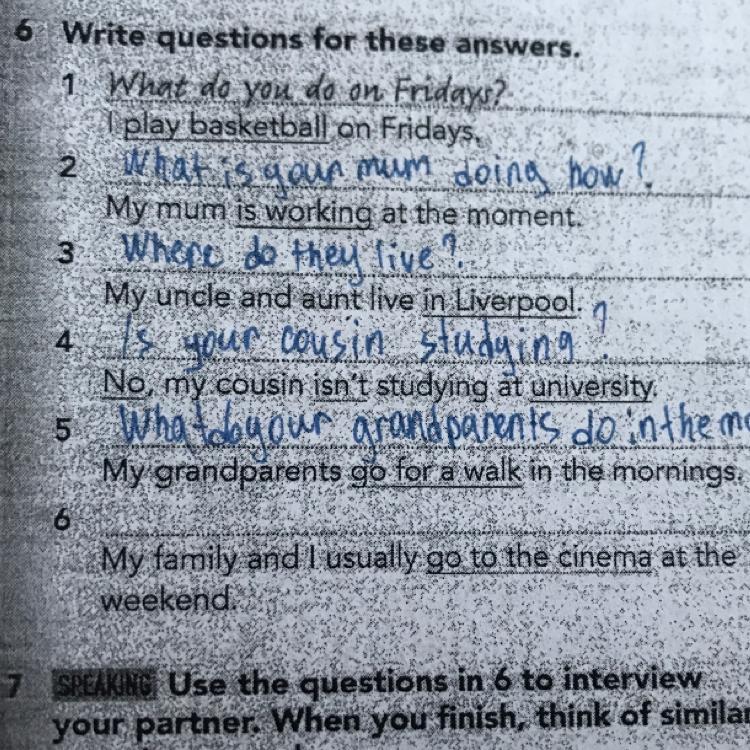 6 Write questions for these answers.
1 What do you do on Fridays?
I play basketball on Fridays.
2 What is your mum doing now?
My mum is working at the moment.
3 Where do they live?
My uncle and aunt live in Liverpool.
4 Is your cousin studying?
No, my cousin isn't studying at university.
5 What do your grandparents do in the
My grandparents go for a walk in the mornings.
6
My family and I usually go to the cinema at the
weekend.
7 SPEAKING Use the questions in 6 to interview
your partner. When you finish, think of